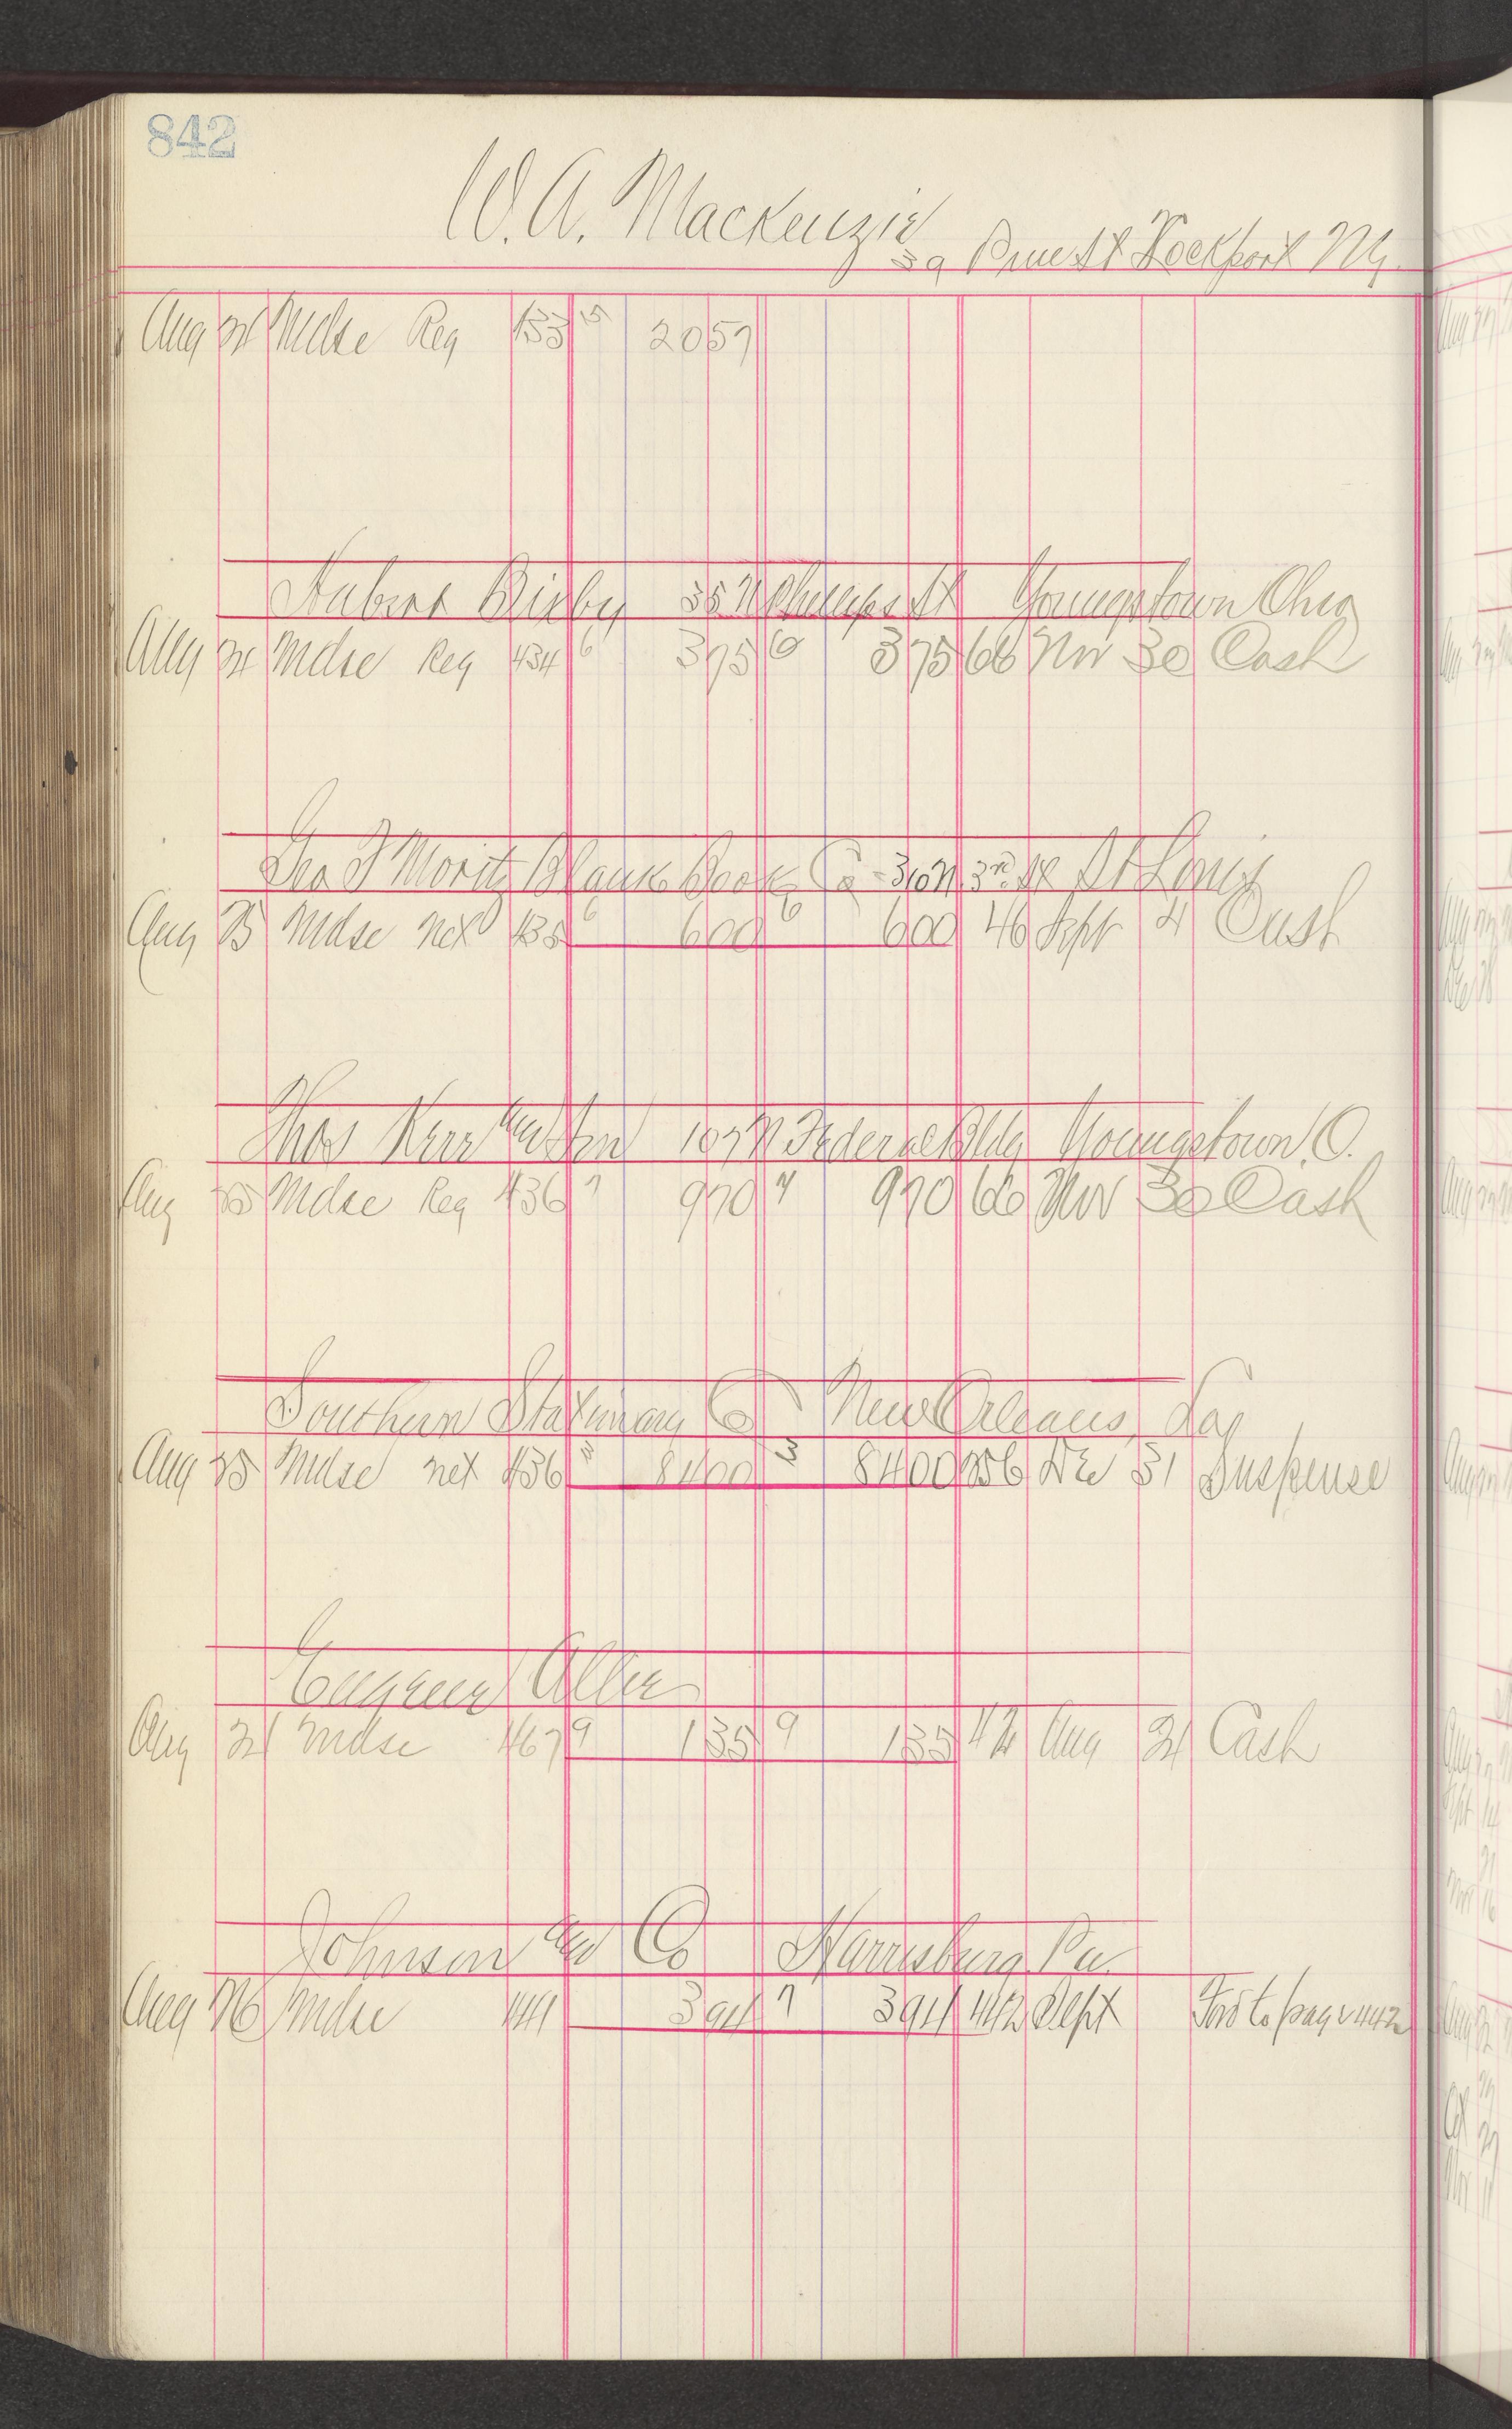 842
W. A. Mackenzie
39 Pine St Lockport NY.
Aug 24 Mdse Reg 433 5 20 57
Hubert Bixby 35 N Phelps St Youngstown Ohio
Aug 24 Mdse Reg 434 6 3 75 6 3 75 66 Nov 30 Cash
Geo D Moritz Blank Book Co - 310 N 3rd St St Louis
Aug 25 Mdse net 435 6 6 00 6 6 00 46 Sept 4 Cash
Thos Kerr and Son 107 N Federal Bldg Youngstown, O.
Aug 25 Mdse Reg 436 7 9 70 7 9 70 66 Nov 30 Cash
Southern Stationary Co New Orleans, La
Aug 25 Mdse net 436 3 84 00 3 84 00 256 Dec 31 Suspense
Eugene Allen
Aug 24 Mdse 467 9 1 35 9 1 35 42 Aug 24 Cash
Johnson and Co Harrisburg Pa.
Aug 26 Mdse 441 3 94 7 3 94 442 Sept to page 442